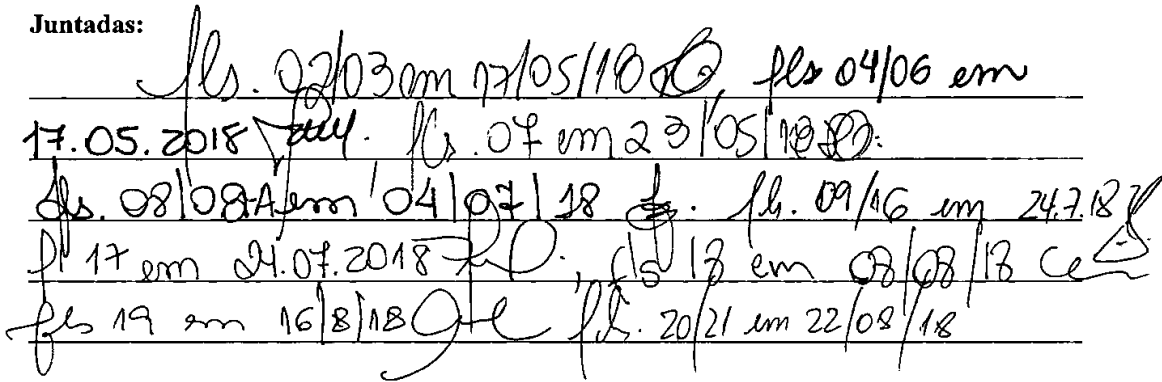 Juntadas:
fls. 02/03 em 17/05/18 fls 04/06 em
17.05.2018 fls. 07 em 23/05/18
fls. 08/08-A em 04/07/18 fls. 09/16 em 24.7.18
fl 17 em 24.07.2018, fls 18 em 08/08/18
fls 19 em 16/8/18 fls. 20/21 em 22/08/18